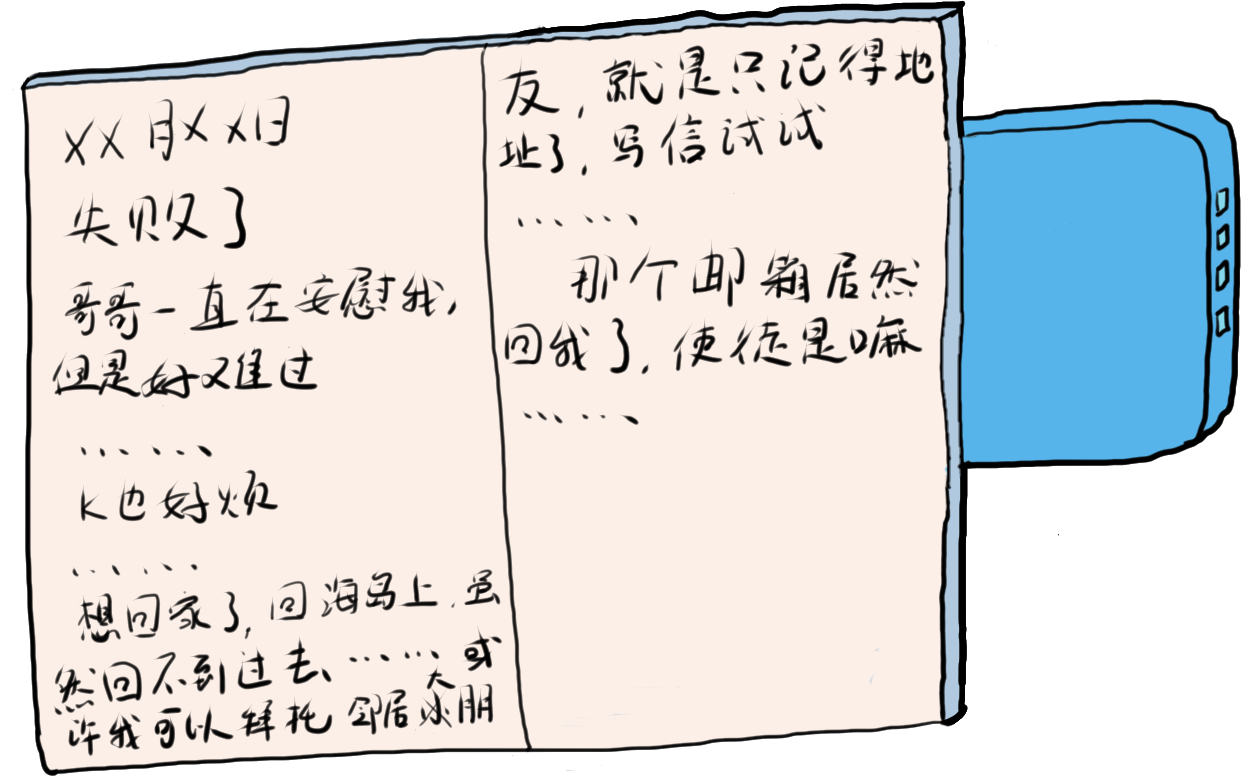 XX月XX日
失败了
哥哥一直在安慰我,
但是好难过
……
K也好烦
……
想回家了,回海岛上,虽
然回不到过去、……或
许我可以拜托邻居大朋
友,就是只记得地
址了,写信试试
……
那个邮箱居然
回我了,使徒是嘛
……